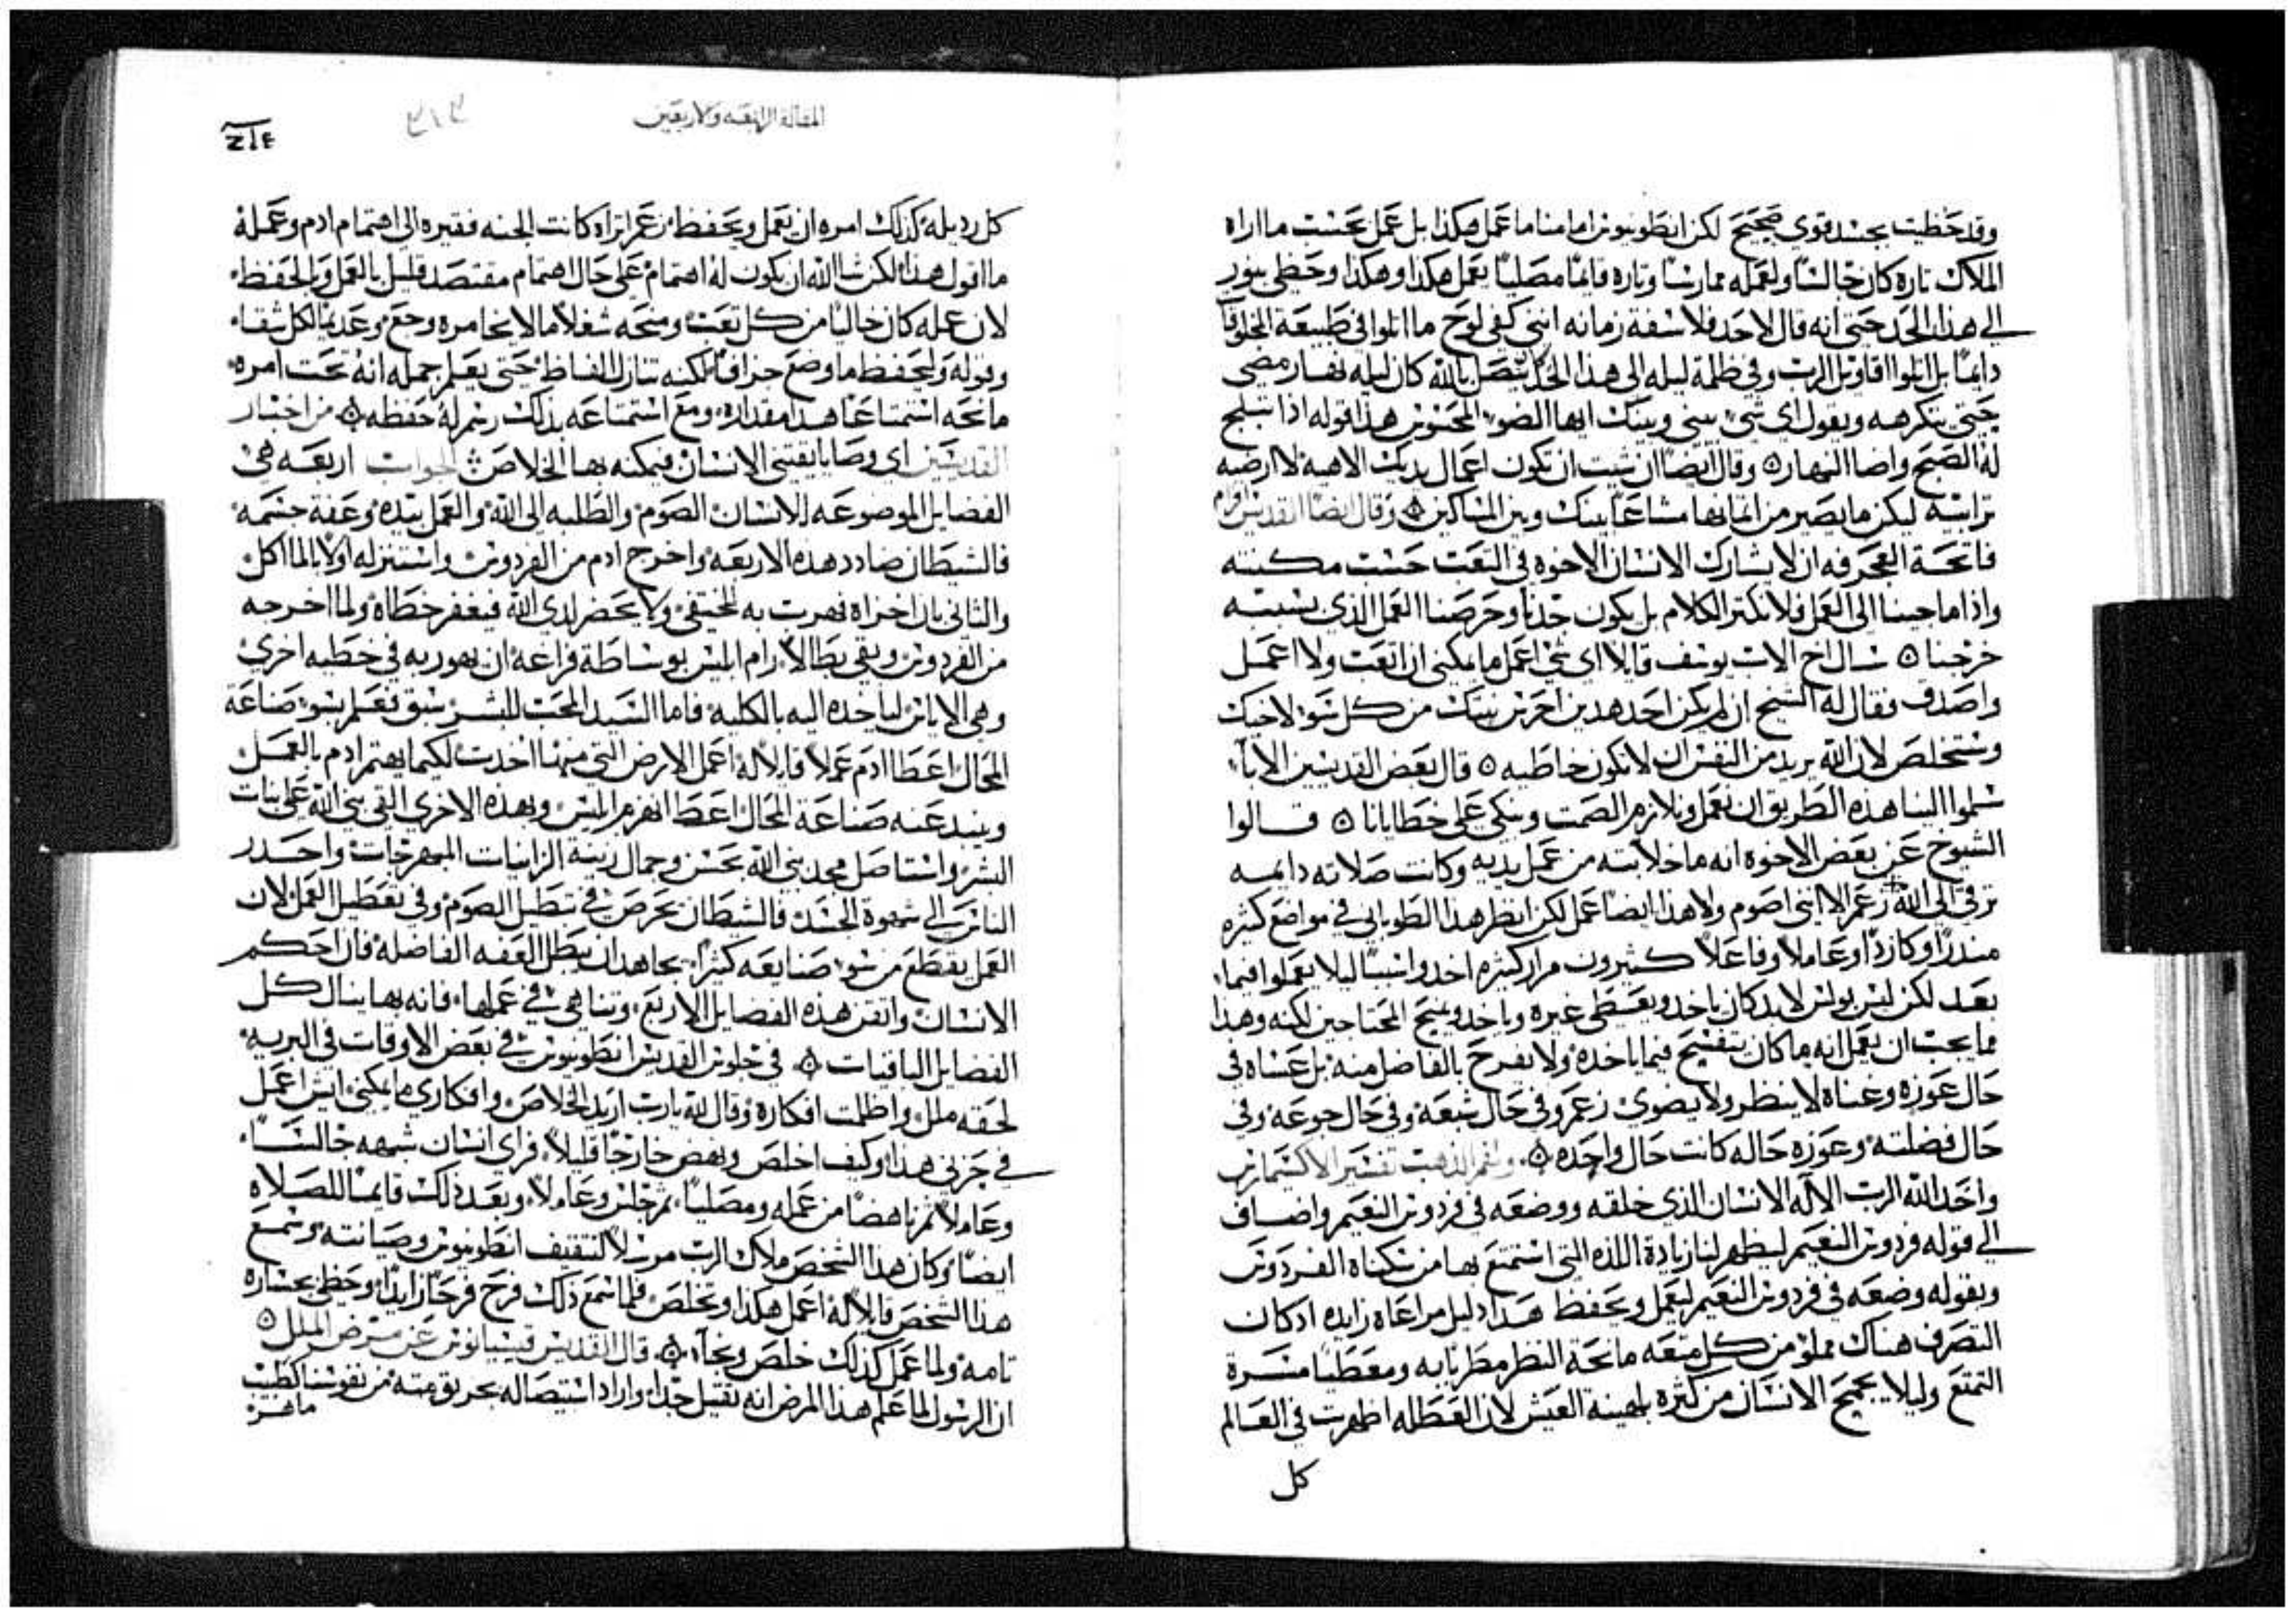 وقد حظيت بجسد قوي صحيح لكن انطونيوس امامنا ما عمل هكذا بل عمل بحسب ما اراه
الملاك تاره كان جالسًا ولعمله ممارسًا وتاره قايمًا مصليًا يعمل هكذا وهكذا وحظي بنور
الي هذا الحد حتى انه قال لاحد فلاسفة زمانه انني كفى لوح ما اتلوا في طبيعة
دايمًا بل اتلوا اقاويل الرب وفي ظلمة ليله الى هذا الحد يتصل بالله كان ليله نهار مضى
حتى يكرهه ويقول اي شي بيني وبينك ايها الضو المحسوس هذا قوله اذا تبلج
له الصبح واضا النهار ۞ وقال ايضًا ان شيت ان تكون اعمال يديك الاهيه لا ارضيه
ترابيه ليكن ما يصير من اثمانها مشاعًا بينك وبين المساكين ۞ وقال ايضًا القديس
فاتحة العجرفه ان لا يشارك الانسان الاخوه في التعب حسب مكنته
واذا ما جينا الى العمل فلا نكثر الكلام بل يكون جدنا وحرصنا العمل الذي بسببه
خرجنا ۞ سال اخ الاب يوسف قايلا اي شي اعمل ما يمكني ان اتعب ولا اعمل
واصدق فقال له الشيخ ان لم يكن احد هدين احرس نيتك من كل سو لاخيك
وستخلص لان الله يريد من النفس ان لا تكون خاطيه ۞ قال بعض القديسين الابا
سلموا الينا هذه الطريق ان نعمل ونلازم الصمت ونبكي على خطايانا ۞ قالوا
الشيوخ عن بعض الاخوه انه ما خلا البته من عمل يديه وكانت صلاته دايمه
ترقى الى الله زعم الا انني اصوم ولا هذا ايضًا عمل لكن انظر هذا الطوباني في مواضع كثيره
منذرًا وكارزًا وعاملا وفاعلاً كثيرون مرار كثيره اخدوا شيئًا ليلا يعملوا فيما
بعد لكن ليس بولس لابد كان ياخد ويعطي غيره وياخد ويمنح المحتاجين لكنه وهذا
مما يجب ان يعمل انه ما كان يتفتح فيما ياخده ولا يفرح بالفاضل منه بل عساه في
حال عوزه وغناه لا ينظر ولا يضوي زعم وفي حال شبعه وفي حال جوعه وفي
حال فضلته وعوزه حاله كانت حال واحده ۞ ولفم الذهب تفسير الاكسيمارس
واخد الله الرب الاله الانسان الذي خلقه ووضعه في فردوس النعيم واضاف
الي قوله فردوس النعيم ليظهر لنا زيادة اللذه التي استمتع بها من سكناه الفردوس
وبقوله وضعه في فردوس النعيم ليعمل ويحفظ هذا دليل مراعاه زايده اد كان
التصرف هناك مملو من كل متعه مانحة النظر مطربًا به ومعطيًا مسرة
التمتع وليلا يجمح الانسان من كثره بلهينة العيش لان العطله اظهرت في العالم
كل
المقالة الرابعه والاربعين
٣١٣
كل رديله كذلك امره ان يعمل ويحفظ زعم اتراه كانت الجنه فقيره الى اهتمام ادم وعمله
ما اقول هذا لكن شا الله ان يكون له اهتمام على حال اهتمام مقتصد قليل بالعمل وبالحفظ
لان عمله كان خاليًا من كل تعب ومنحه شغلاً ما لا يخامره وجع وعديمًا لكل شقاء
وقوله وليحفظ ما وضع جزافًا لكنه تنازل الفاظ حتى يعلم جمله انه تحت امره
مانحه استمتاعًا هدا مقداره ومع استمتاعه بذلك رسم له حفظه ۞ من اخبار
القديسين اي وصايا يقتني الانسان فيمكنه بها الخلاص ⁘ الجواب اربعه هي
الفضايل الموضوعه للانسان الصوم والطلبه الى الله والعمل بيده وعفة جسمه
فالشيطان ضادد هذه الاربعه واخرج ادم من الفردوس واستنزله اولًا بالماكل
والثاني بان اخزاه فهرب به ليختفي ولا يحضر لدي الله فيغفر خطاه ولما اخرجه
من الفردوس وبقي بطالًا رام ابليس بوساطة فراغه ان يهوربه في خطيه اخرى
وهي الاياس لياخده اليه بالكليه فاما السيد المحب للبشر سبق فعلم بسو صناعة
المحال اعطا ادم عملًا قايلًا له اعمل الارض التي منها اخدت لكيما يهتم ادم بالعمل
وينبد عنه صناعة المحال اعطا انهزم ابليس وبهذه الاخرى القى بني الله على بنات
البشر واستاصل مجد بني الله بحسن وجمال زينة الزانيات المبهرجات واحدر
الناس الي شهوة الجسد فالشيطان يحرص في تبطيل الصوم وفي تعطيل العمل لان
العمل يقطع من سو صنايعه كثيرًا يجاهد ان يبطل العفه الفاضله فان احكم
الانسان واتقن هذه الفضايل الاربع وتناهى في عملها فانه بها ينال كل
الفضايل الباقيات ۞ في جلوس القديس انطونيوس في بعض الاوقات في البريه
لحقه ملل واظلمت افكاره وقال لله يارب اريد الخلاص وافكاري ما يمكني ايش اعمل
في حزني هذا وكيف اخلص ونهض خارجًا قليلًا فراى انسان شبهه جالسًا
وعاملًا ثم ناهضًا من عمله ومصليًا ثم جلس وعاملًا وبعد ذلك قايمًا للصلاه
ايضًا وكان هذا الشخص ملاك الرب مرسلًا لتثقيف انطونيوس وصيانته وسمع
هذا الشخص قايلًا له اعمل هكذا وتخلص فلما سمع ذلك فرح فرحًا زايدًا وحظي بجساره
تامه ولما عمل كذلك خلص ونجا ۞ قال القديس قسيانوس عن مرض الملل ۞
ان الرسول لما علم هذا المرض انه ثقيل جدًا واراد استيصاله بحريق منه من نفوسنا كطبيب
ماهر